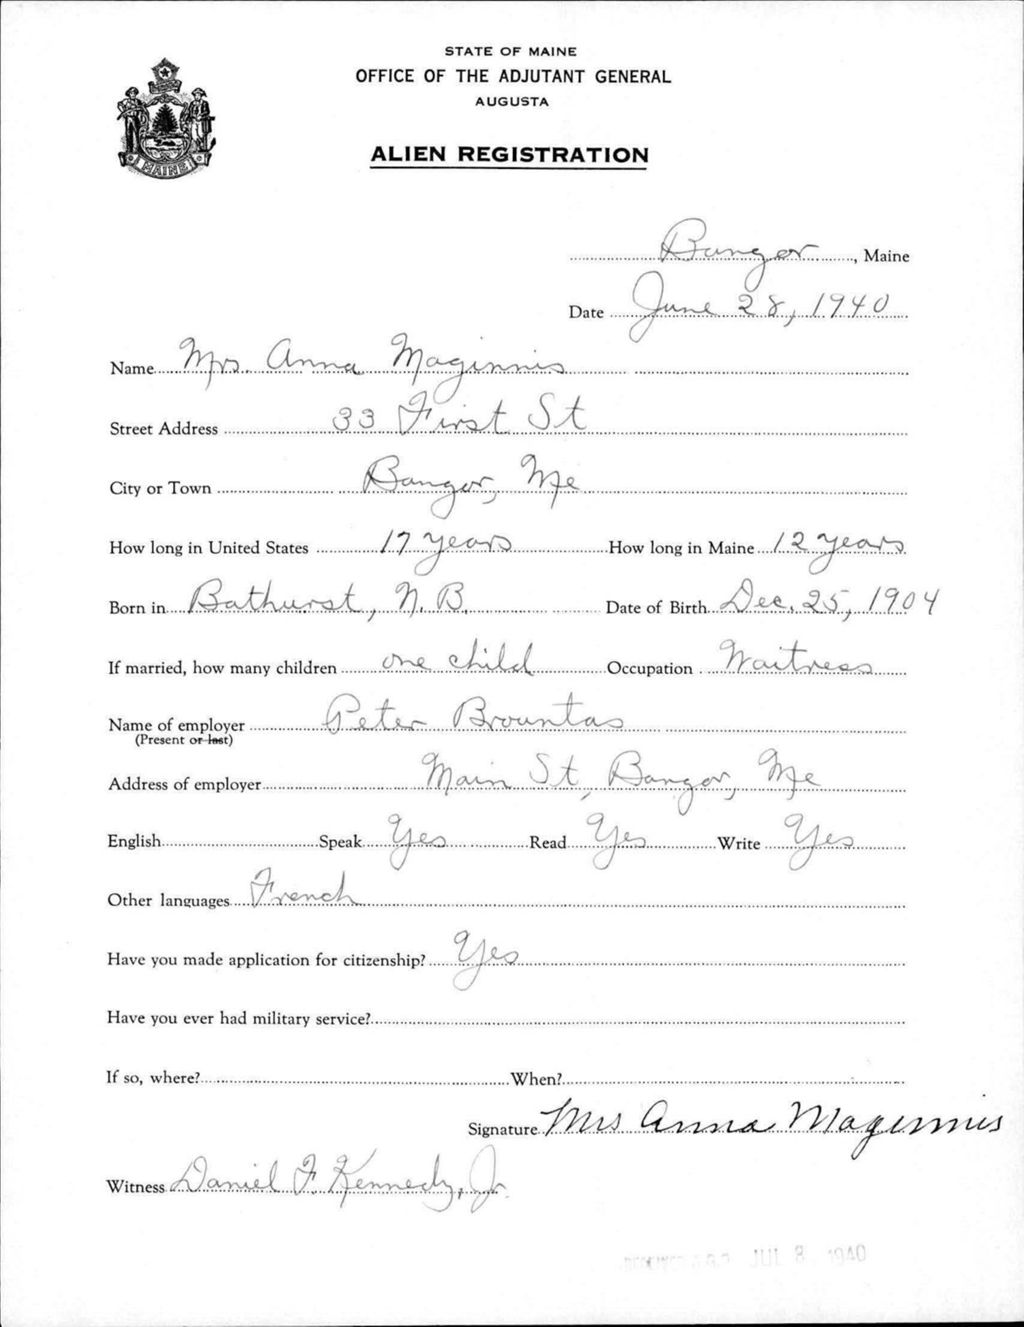 STATE OF MAINE
OFFICE OF THE ADJUTANT GENERAL
AUGUSTA
ALIEN REGISTRATION
MAINE
Bangor, Maine
Date June 28, 1940
Name Mrs. Anna Maginnis
Street Address 33 First St
City or Town Bangor, Me
How long in United States 17 years How long in Maine 12 years
Born in Bathurst, N.B. Date of Birth Dec. 25, 1904
If married, how many children one child Occupation Waitress
Name of employer Peter Brountas
(Present or last)
Address of employer Main St, Bangor, Me
English Speak Yes Read Yes Write Yes
Other languages French
Have you made application for citizenship? Yes
Have you ever had military service?
If so, where? When?
Signature Mrs Anna Maginnis
Witness Daniel F. Kennedy, Jr.
JUL 8 1940